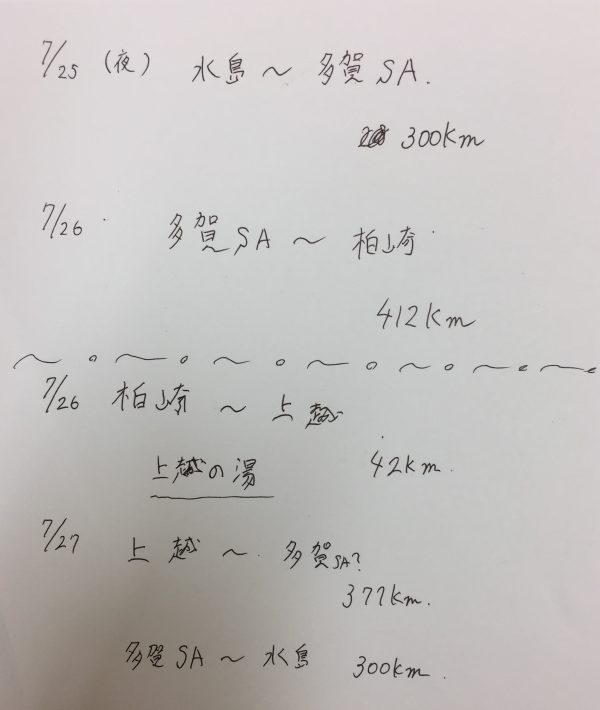 7/25 (夜) 水島 〜 多賀SA.
300km
7/26 多賀SA 〜 柏崎
412km
7/26 柏崎 〜 上越
上越の湯 42km.
7/27 上越 〜 多賀SA?
377km.
多賀SA 〜 水島 300km.